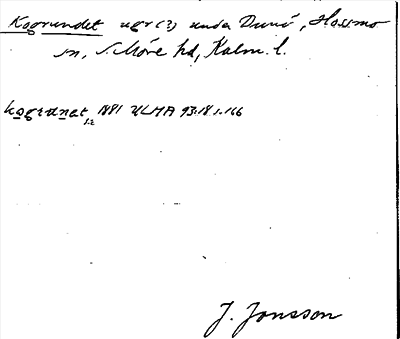 Kogrundet ugr (?) under Dunö, Hossmo
sn, S. Möre hd, Kalm. l.
kogrɑnet 1881 ULMA 93:18 s. 166
12
J. Jonsson